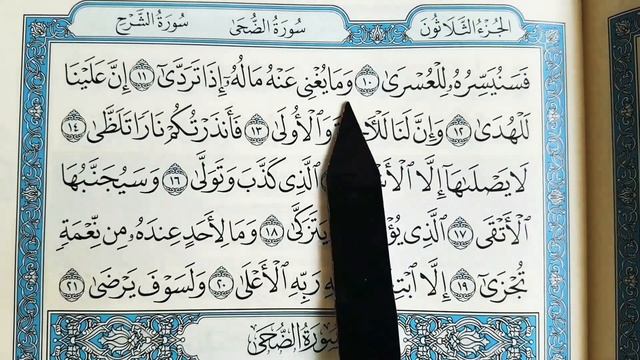 الجُزءُ الثَّلَاثُونَ سُورَةُ الضُّحَى سُورَةُ الشَّرْحِ
فَسَنُيَسِّرُهُۥ لِلْعُسْرَىٰ ١٠ وَمَا يُغْنِى عَنْهُ مَالُهُۥٓ إِذَا تَرَدَّىٰٓ ١١ إِنَّ عَلَيْنَا
لَلْهُدَىٰ ١٢ وَإِنَّ لَنَا وَٱلْأُولَىٰ ١٣ فَأَنذَرْتُكُمْ نَارًا تَلَظَّىٰ ١٤
لَا يَصْلَىٰهَآ إِلَّا ٱلَّذِى كَذَّبَ وَتَوَلَّىٰ ١٦ وَسَيُجَنَّبُهَا
ٱلْأَتْقَى ١٧ ٱلَّذِى يَتَزَكَّىٰ ١٨ وَمَا لِأَحَدٍ عِندَهُۥ مِن نِّعْمَةٍ
تُجْزَىٰٓ ١٩ إِلَّا رَبِّهِ ٱلْأَعْلَىٰ ٢٠ وَلَسَوْفَ يَرْضَىٰ ٢١
سُورَةُ الضُّحَى